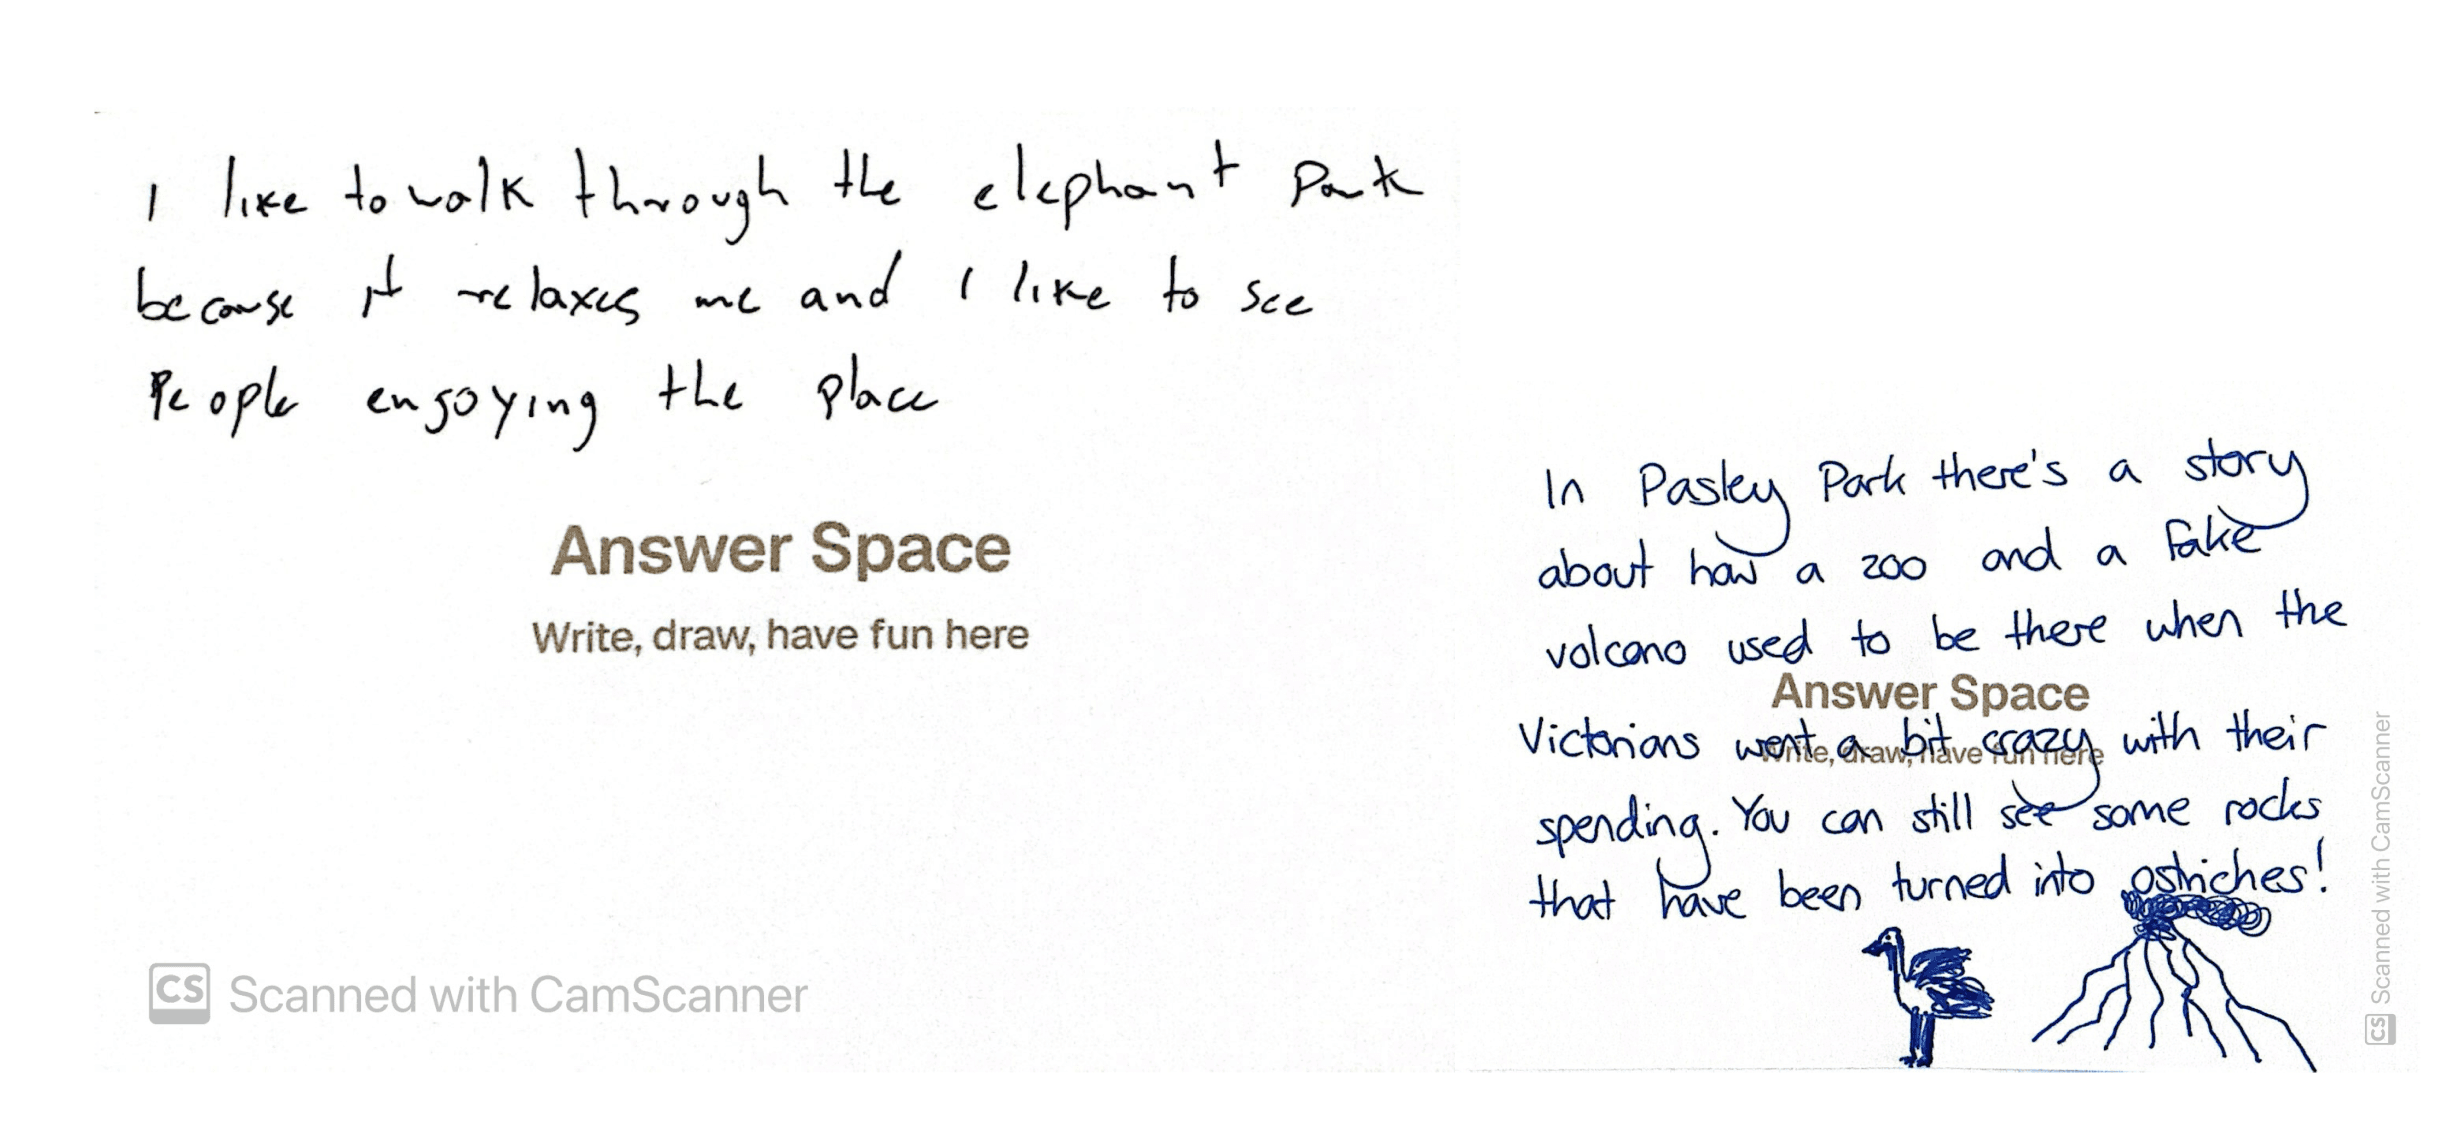 I like to walk through the elephant Park
because it relaxes me and I like to see
People enjoying the place
Answer Space
Write, draw, have fun here
CS Scanned with CamScanner
In Pasley Park there's a story
about how a zoo and a fake
volcano used to be there when the
Answer Space
Victorians went a bit crazy with their
Write, draw, have fun here
spending. You can still see some rocks
that have been turned into ostriches!
CS Scanned with CamScanner